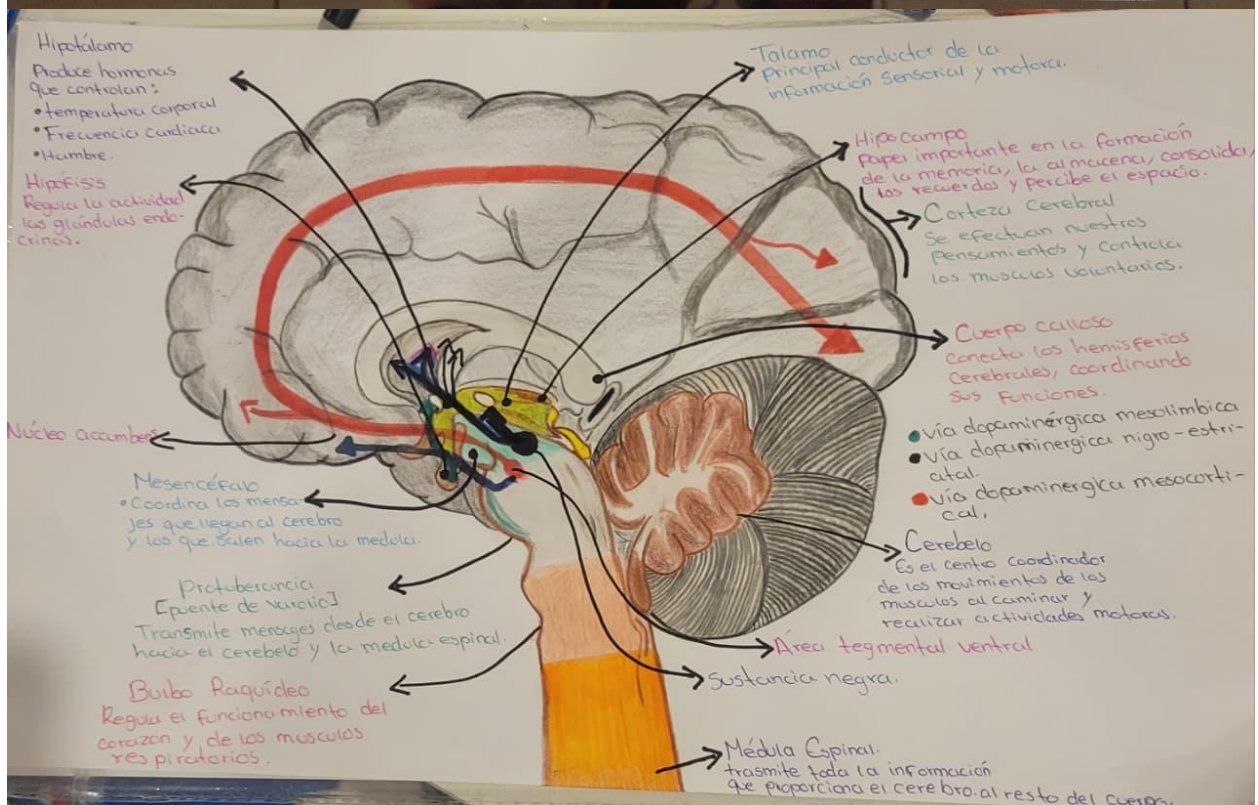 Hipotálamo
Produce hormonas
que controlan:
• temperatura corporal
• Frecuencia cardiaca
• Hambre.
Hipófisis
Regula la actividad
las glándulas endo-
crinas.
Núcleo accumbens
Mesencéfalo
• Coordina los mensa-
jes que llegan al cerebro
y los que salen hacia la medula.
Protuberancia
[puente de varolio]
Transmite mensajes desde el cerebro
hacia el cerebelo y la medula espinal.
Bulbo Raquídeo
Regula el funcionamiento del
corazón y de los musculos
respiratorios.
Talamo
principal conductor de la
información sensorial y motora.
Hipocampo
papel importante en la formación
de la memoria, la almacena, consolida,
los recuerdos y percibe el espacio.
Corteza cerebral
Se efectuan nuestros
pensamientos y controla
los musculos voluntarios.
Cuerpo calloso
conecta los hemisferios
cerebrales, coordinando
sus funciones.
• vía dopaminérgica mesolimbica
• vía dopaminergica nigro-estri-
atal.
• vía dopaminergica mesocorti-
cal.
Cerebelo
Es el centro coordinador
de los movimientos de los
musculos al caminar y
realizar actividades motoras.
Área tegmental ventral
Sustancia negra.
Médula Espinal.
trasmite toda la información
que proporciona el cerebro al resto del cuerpo.